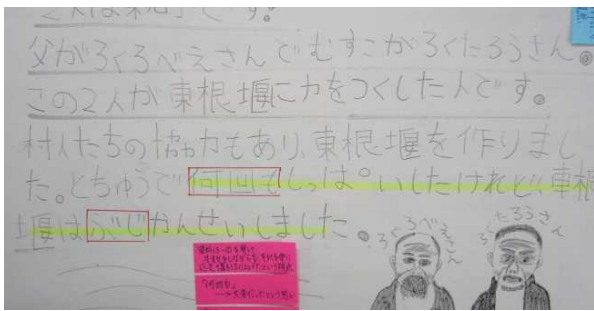 父がろくろべえさんでむすこがろくたろうさん。
この2人が東根堰に力をつくした人です。
村人たちの協力もあり、東根堰を作りまし
た。とちゅうで何回もしっぱいしたけれど、東根
堰はぶじかんせいしました。
ろくろべえさん
ろくたろうさん
「何回も」